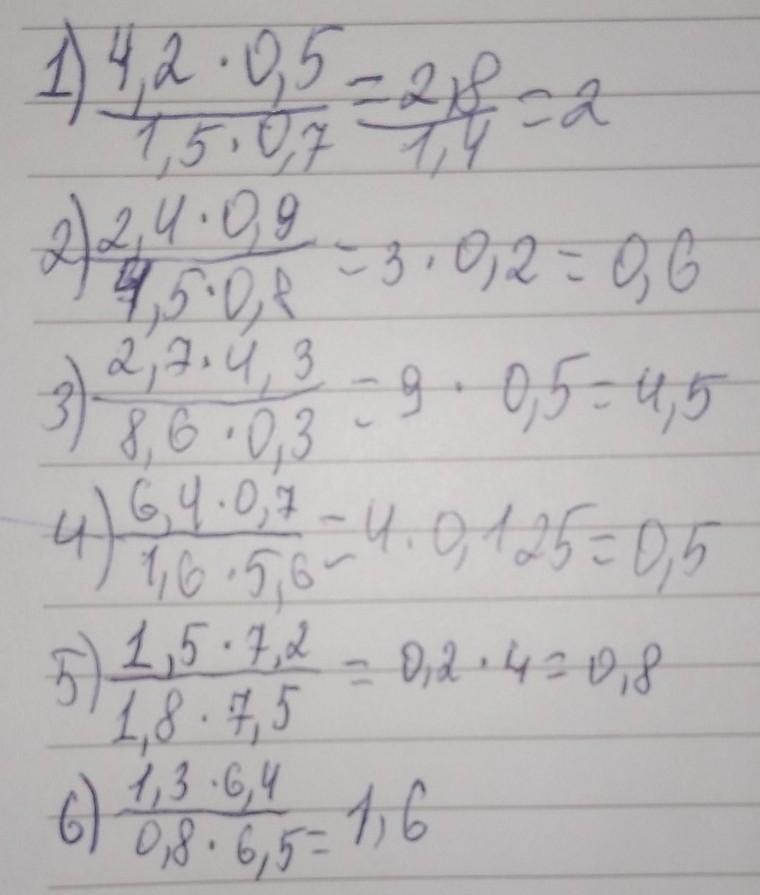 1) 4,2 · 0,5 / 1,5 · 0,7 = 2,8 / 1,4 = 2
2) 2,4 · 0,9 / 4,5 · 0,8 = 3 · 0,2 = 0,6
3) 2,7 · 4,3 / 8,6 · 0,3 = 9 · 0,5 = 4,5
4) 6,4 · 0,7 / 1,6 · 5,6 = 4 · 0,125 = 0,5
5) 1,5 · 7,2 / 1,8 · 7,5 = 0,2 · 4 = 0,8
6) 1,3 · 6,4 / 0,8 · 6,5 = 1,6